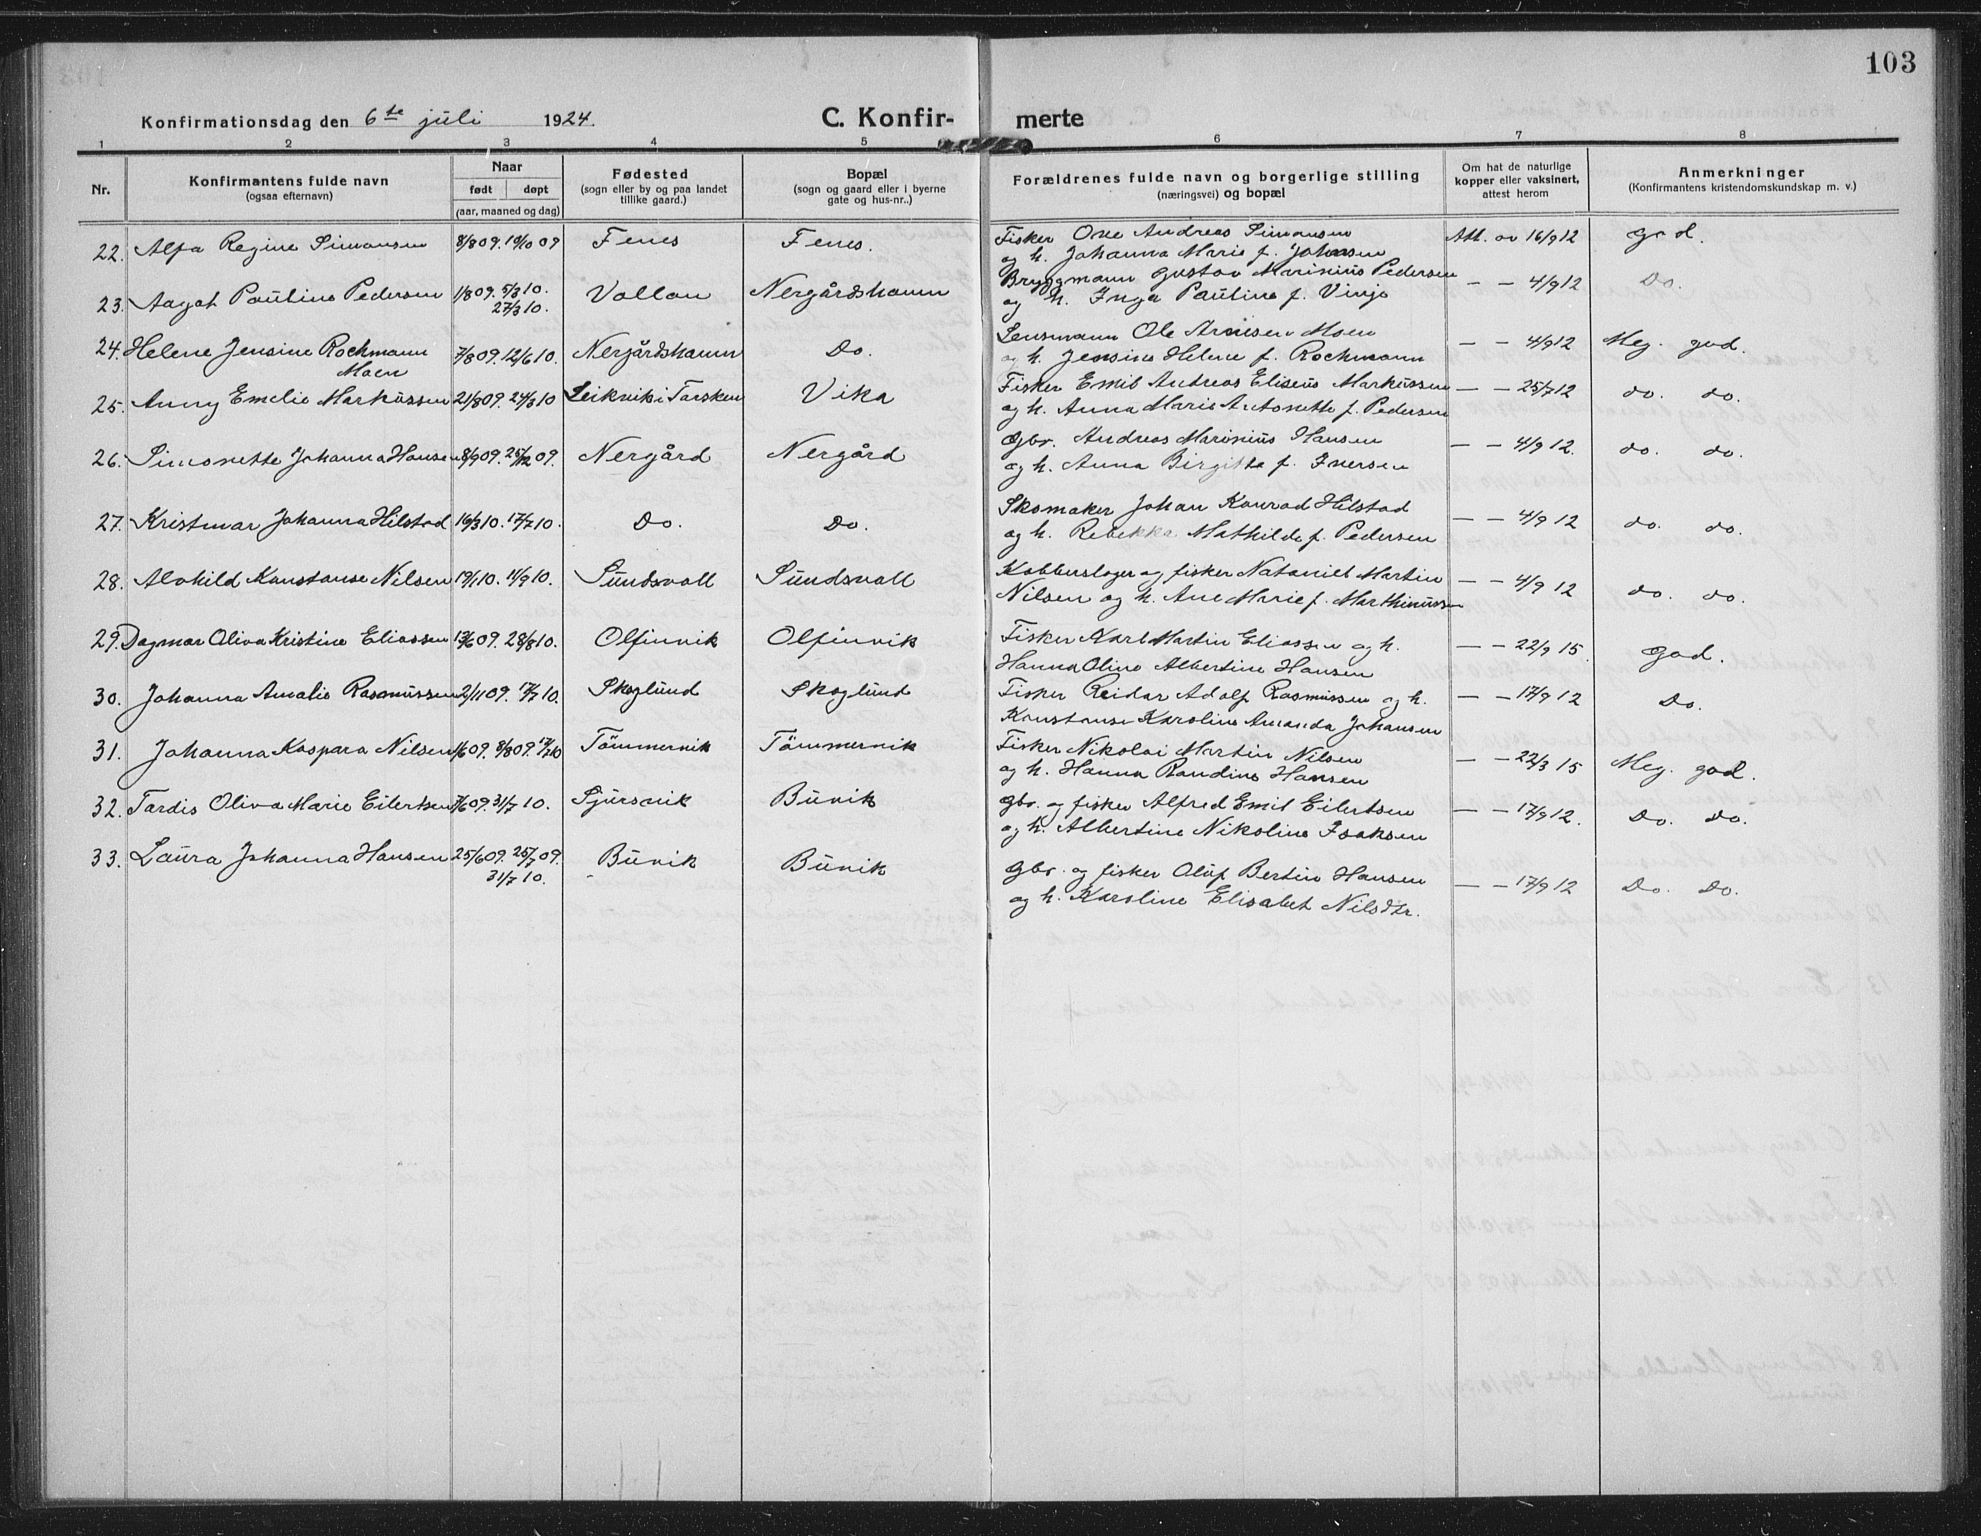 103
Konfirmationsdag den 6te juli 1924. C. Konfir- merte
1 2 3 4 5 6 7 8
Nr. Konfirmantens fulde navn (ogsaa efternavn) Naar født døpt (aar, maaned og dag) Fødested (sogn eller by og paa landet tillike gaard.) Bopæl (sogn og gaard eller i byerne gate og hus-nr.) Forældrenes fulde navn og borgerlige stilling (næringsvei) og bopæl Om hat de naturlige kopper eller vaksinert, attest herom Anmerkninger (Konfirmantens kristendomskundskap m. v.)
22. Alfa Regine Simonsen 8/8 09. 19/10 09 Fenes Fenes. Fisker Ove Andreas Simonsen Att. av 16/9 12 god.
og h. Johanna Marie f. Johnsen
23. Aagot Pauline Pedersen 1/8 09. 5/3 10. Vollan Nergårdshamn Bryggmann Gustav Marinius Pedersen — — 4/9 12 Do.
27/3 10. og h. Inga Pauline f. Vinje
24. Helene Jensine Rochmann 7/8 09. 12/6 10. Nergårdshamn Do. Lensmann Ole Arnesen Moen — — 4/9 12 Meg. god.
Moen og h. Jensine Helene f. Rochmann
25. Anny Emelie Markussen 21/8 09. 24/3 10 Leikvik i Torsken Vika Fisker Emil Andreas Eliseus Markussen — — 25/7 12 do. do.
og h. Anna Marie Antonette f. Pedersen
26. Simonette Johanna Hansen 8/9 09. 25/12 09. Nergård Nergård Gbr. Andreas Marinius Hansen — — 4/9 12. do. do.
og h. Anna Birgitta f. Iversen
27. Kristmar Johanna Hilstad 16/3 10. 17/7 10. Do. Do. Skomaker Johan Konrad Hilstad — — 4/9 12 do. do.
og h. Rebekka Mathilde f. Pedersen
28. Alvhild Konstanse Nilsen 19/1 10. 11/9 10. Sundsvoll Sundsvoll Kobberslager og fisker Nataniel Martin — — 4/9 12 do. do.
Nilsen og h. Ane Marie f. Marthinussen
29. Dagmar Oliva Kristine Eliassen 13/6 09. 28/8 10. Olfinvik Olfinvik Fisker Karl Martin Eliassen og h. — — 22/9 15. god.
Hanna Oline Albertine Hansen
30. Johanna Amalie Rasmussen 2/11 09. 17/7 10. Skoglund Skoglund Fisker Reidar Adolf Rasmussen og h. — — 17/9 12 Do.
Konstanse Karoline Amanda Johansen
31. Johanna Kaspara Nilsen 1/6 09. 8/8 09. 17/7 10 Tömmervik Tömmervik Fisker Nikolai Martin Nilsen — — 22/3 15 Meg. god.
og h. Hanna Randine Hansen
32. Tordis Oliva Marie Eilertsen 7/6 09. 31/7 10. Sjursvik Buvik Gbr. og fisker Alfred Emil Eilertsen — — 17/9 12. Do. Do.
og h. Albertine Nikoline Isaksen
33. Laura Johanna Hansen 25/6 09. 25/7 09. Buvik Buvik Gbr. og fisker Oluf Bertin Hansen — — 17/9 12 Do. Do.
31/7 10. og h. Karoline Elisabet Nilsdtr.